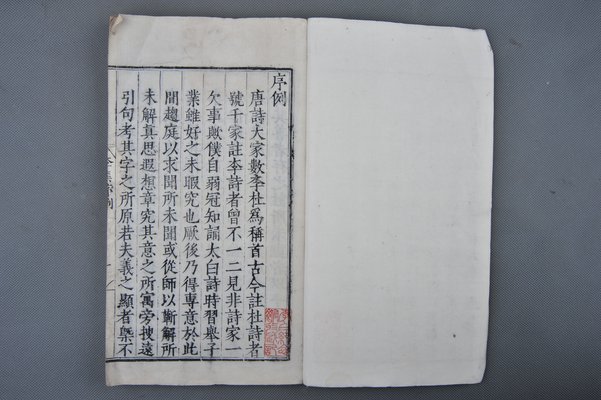 序例
唐詩大家數李杜爲稱首古今註杜詩者
號千家註李詩者曾不一二見非詩家一
欠事歟僕自弱冠知誦太白詩時習舉子
業雖好之未暇究也厥後乃得專意於此
間趨庭以求聞所未聞或從師以蘄解所
未解冥思遐想章究其意之所寓旁搜遠
引句考其字之所原若夫義之顯者槩不